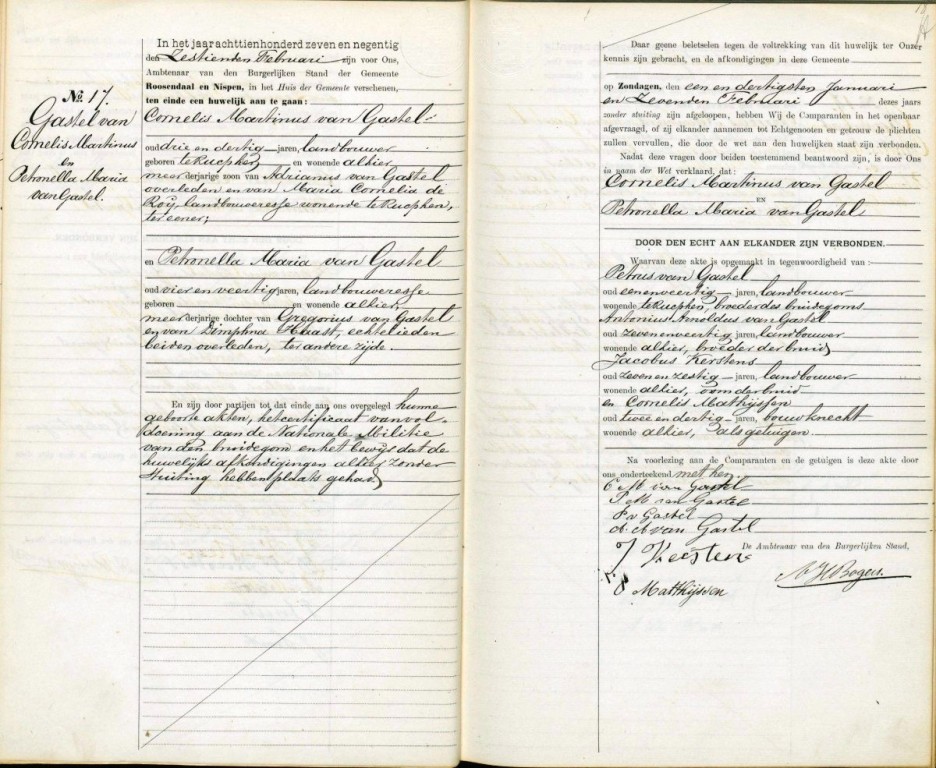 No. 17.
Gastel van
Cornelis Martinus
en
Petronella Maria
van Gastel.
In het jaar achttienhonderd zeven en negentig
den Zestienden Februari zijn voor Ons,
Ambtenaar van den Burgerlijken Stand der Gemeente
Roosendaal en Nispen, in het Huis der Gemeente verschenen,
ten einde een huwelijk aan te gaan:
Cornelis Martinus van Gastel
oud drie en dertig jaren, landbouwer
geboren te Rucphen en wonende alhier
meerderjarige zoon van Adrianus van Gastel
overleden en van Maria Cornelia de
Roij, landbouweresse wonende te Rucphen,
ter eener;
en Petronella Maria van Gastel
oud vier en veertig jaren, landbouweresse
geboren en wonende alhier
meerderjarige dochter van Gregorius van Gastel
en van Dimphna Haast, echtelieden
beiden overleden, ter andere zijde.
En zijn door partijen tot dat einde aan ons overgelegd hunne
geboorte akten, het certificaat van vol-
doening aan de Nationale Militie
van den bruidegom en het bewijs dat de
huwelijks afkondigingen alhier zonder
stuiting hebben plaats gehad
Daar geene beletselen tegen de voltrekking van dit huwelijk ter Onzer
kennis zijn gebracht, en de afkondigingen in deze Gemeente
op Zondagen, den een en dertigsten Januari
en Zevenden Februari dezes jaars
zonder stuiting zijn afgeloopen, hebben Wij de Comparanten in het openbaar
afgevraagd, of zij elkander aannemen tot Echtgenooten en getrouw de plichten
zullen vervullen, die door de wet aan den huwelijken staat zijn verbonden.
Nadat deze vragen door beiden toestemmend beantwoord zijn, is door Ons
in naam der Wet verklaard, dat:
Cornelis Martinus van Gastel
EN
Petronella Maria van Gastel
DOOR DEN ECHT AAN ELKANDER ZIJN VERBONDEN.
Waarvan deze akte is opgemaakt in tegenwoordigheid van:
Petrus van Gastel
oud eenenveertig jaren, landbouwer
wonende te Rucphen, broeder des bruidegoms
Antonius Arnoldus van Gastel
oud zevenenveertig jaren, landbouwer
wonende alhier, broeder der bruid
Jacobus Kerstens
oud zeven en zestig jaren, landbouwer
wonende alhier, oom der bruid
en Cornelis Mathijssen
oud twee en dertig jaren, bouwknecht
wonende alhier, als getuigen
Na voorlezing aan de Comparanten en de getuigen is deze akte door
ons onderteekend met hen
C M van Gastel
P M van Gastel
P v Gastel
A. A van Gastel
De Ambtenaar van den Burgerlijken Stand,
J Keesten
Matthijssen